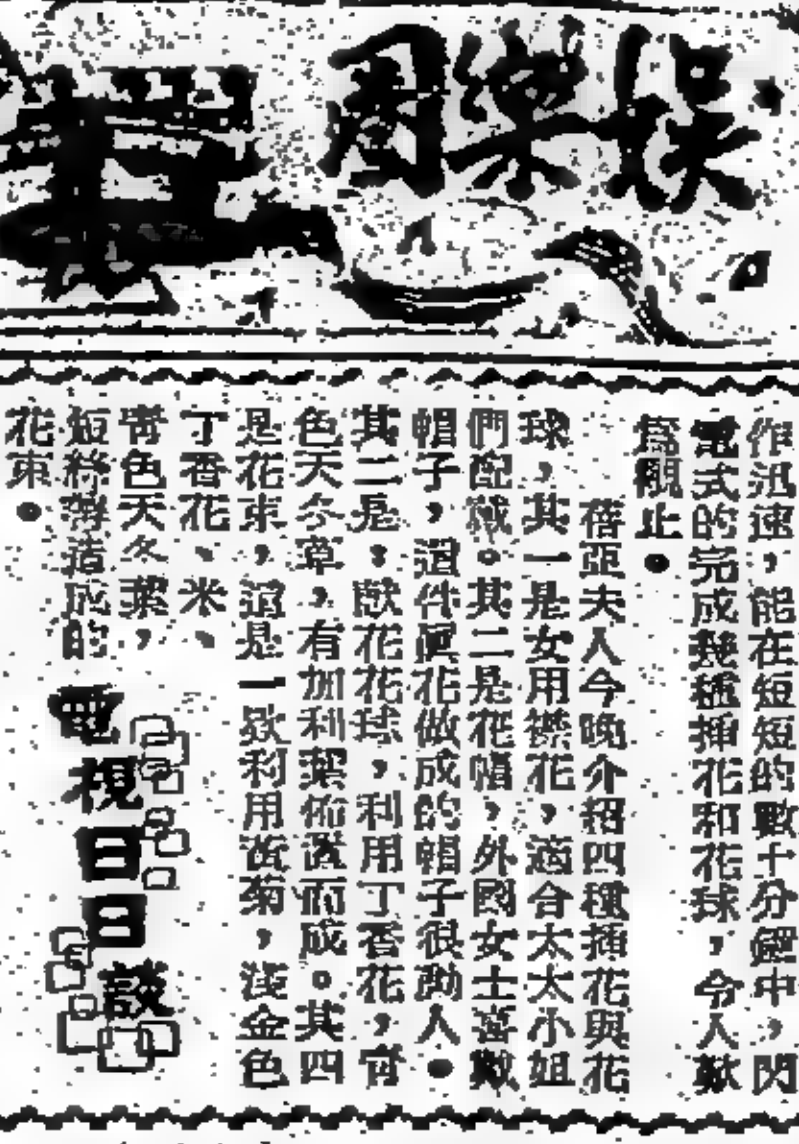 娛樂圈
作迅速，能在短短的數十分鐘中，閃
電式的完成幾種揷花和花球，令人歎
爲觀止。
蓓亞夫人今晚介紹四種揷花與花
球，其一是女用襟花，適合太太小姐
們配戴。其二是花帽，外國女士喜歡
帽子，這件眞花做成的帽子很動人。
其二是，獻花花球，利用丁香花，靑
色天冬草，有加利葉佈置而成。其四
是花束，這是一欵利用黃菊，淺金色
丁香花、米、
靑色天冬葉，
短絲帶造成的
花束。
電視日日談